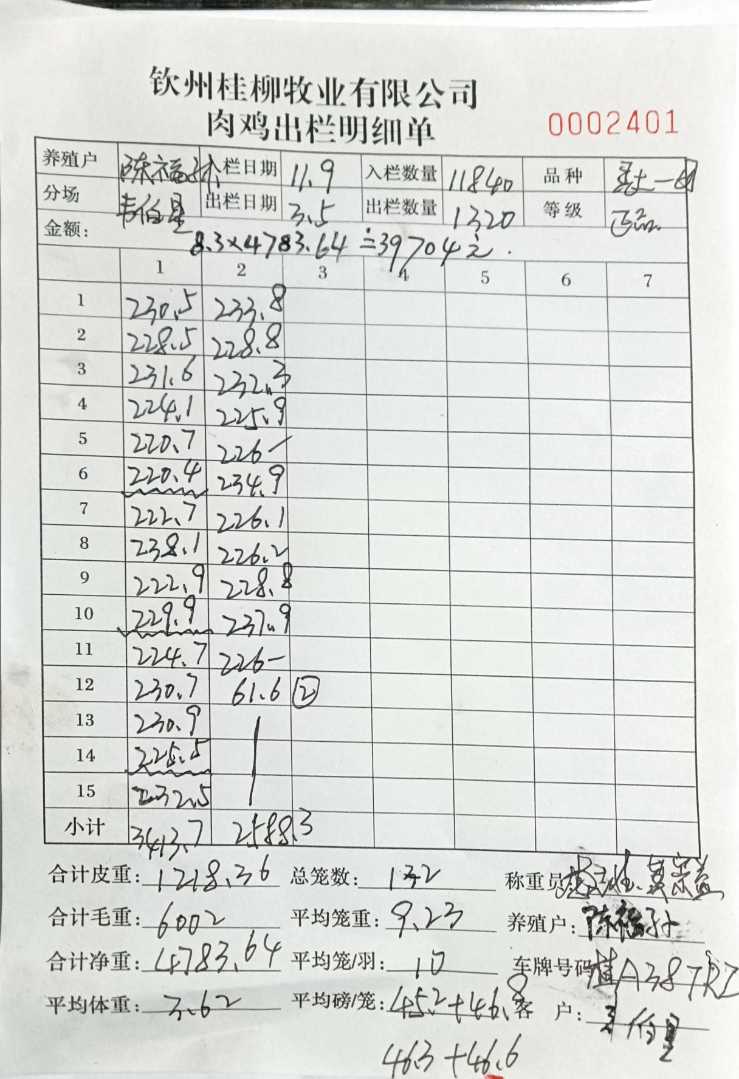 钦州桂柳牧业有限公司
肉鸡出栏明细单
0002401
养殖户 陈福 入栏日期 11.9 入栏数量 11840 品种
分场 韦伯星 出栏日期 3.5 出栏数量 1320 等级 正品
金额: 8.3×4783.64≐39704元.
1 2 3 4 5 6 7
1 230.5 233.8
2 228.5 228.8
3 231.6 232.3
4 224.1 225.9
5 220.7 226-
6 220.4 234.9
7 222.7 226.1
8 238.1 226.2
9 222.9 228.8
10 229.9 237.9
11 224.7 226-
12 230.7 61.6 ②
13 230.9
14 225.5
15 232.5
小计 3413.7 2588.3
合计皮重: 1218.36 总笼数: 132 称重员
合计毛重: 6002 平均笼重: 9.23 养殖户: 陈福
合计净重: 4783.64 平均笼/羽: 10 车牌号码
平均体重: 3.62 平均磅/笼: 45.2+46.8 客 户: 韦伯星
46.3+46.6